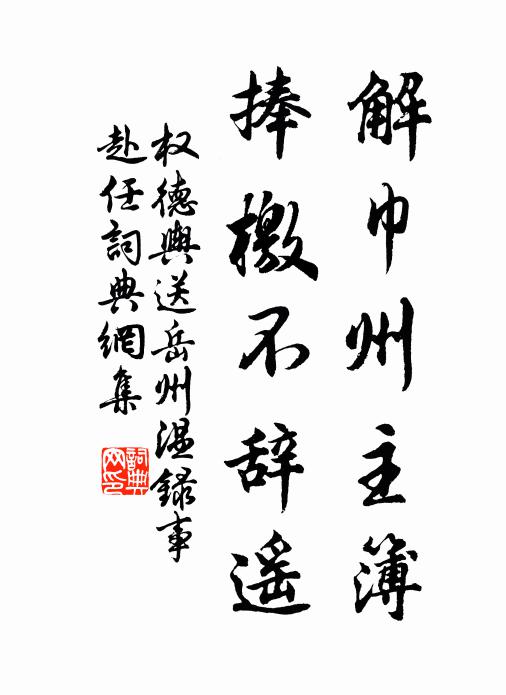 解巾州主簿
捧檄不辞遥
权德舆送岳州温录事
赴任词典網集
詞典网印